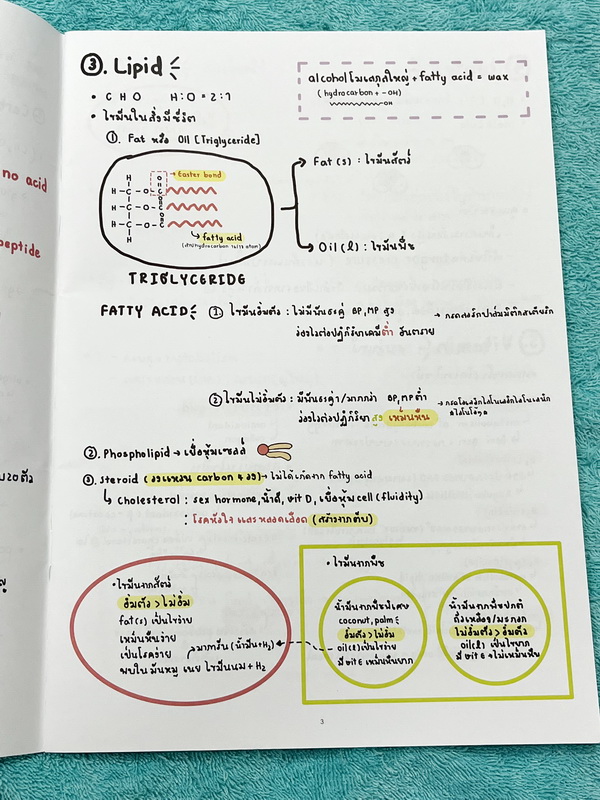 ③. Lipid
• C H O H:O ≠ 2:1
• ไขมันในสิ่งมีชีวิต
alcohol โมเลกุลใหญ่ + fatty acid = wax
(hydrocarbon + -OH)
-OH
①. Fat หรือ Oil [Triglyceride]
Easter bond
fatty acid
TRIGLYCERIDE
Fat (s) : ไขมันสัตว์
Oil (l) : ไขมันพืช
FATTY ACID
① ไขมันอิ่มตัว : ไม่มีพันธะคู่ BP, MP สูง
ว่องไวต่อปฏิกิริยาเคมีต่ำ อันตราย
② ไขมันไม่อิ่มตัว : มีพันธะคู่ 1/มากกว่า BP, MP ต่ำ
ว่องไวต่อปฏิกิริยา สูง เหม็นหืน
②. Phospholipid → เยื่อหุ้มเซลล์
③. steroid (วงแหวน carbon 4 วง) → ไม่ได้เกิดจาก fatty acid
Cholesterol : sex hormone, น้ำดี, vit D, เยื่อหุ้ม cell (fluidity)
: โรคหัวใจ และหลอดเลือด (สร้างจากตับ)
• ไขมันจากสัตว์
อิ่มตัว > ไม่อิ่ม
fat(s) เป็นไขง่าย
เหม็นหืนง่าย
เป็นโรคง่าย
พบใน มันหมู เนย ไขมันนม + H₂
มาการีน (น้ำมัน + H₂)
• ไขมันจากพืช
น้ำมันจากพืชพิเศษ
coconut, palm
อิ่มตัว > ไม่อิ่ม
oil(l) เป็นไขง่าย
มี vit E เหม็นหืนยาก
น้ำมันจากพืชปกติ
ถั่วเหลือง/มะกอก
ไม่อิ่มตัว > อิ่มตัว
oil(l) เป็นไขยาก
มี vit E → ไม่เหม็นหืน
3
no acid
peptide